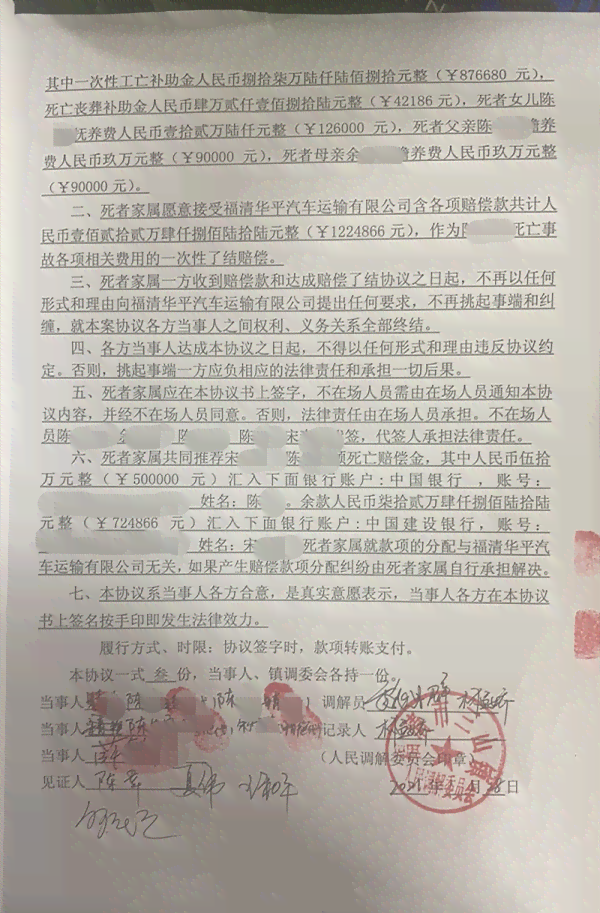 其中一次性工亡补助金人民币捌拾柒万陆仟陆佰捌拾元整（￥876680 元），
死亡丧葬补助金人民币肆万贰仟壹佰捌拾陆元整（￥42186 元），死者女儿陈
抚养费人民币壹拾贰万陆仟元整（￥126000 元），死者父亲陈 赡养
费人民币玖万元整（￥90000 元），死者母亲余 赡养费人民币玖万元整
（￥90000 元）。
二、死者家属愿意接受福清华平汽车运输有限公司含各项赔偿款共计人
民币壹佰贰拾贰万肆仟捌佰陆拾陆元整（￥1224866 元），作为 死亡事
故各项相关费用的一次性了结赔偿。
三、死者家属一方收到赔偿款和达成赔偿了结协议之日起，不再以任何
形式和理由向福清华平汽车运输有限公司提出任何要求，不再挑起事端和纠
缠，就本案协议各方当事人之间权利、义务关系全部终结。
四、各方当事人达成本协议之日起，不得以任何形式和理由违反协议约
定。否则，挑起事端一方应负相应的法律责任和承担一切后果。
五、死者家属应在本协议书上签字，不在场人员需由在场人员通知本协
议内容，并经不在场人员同意。否则，法律责任由在场人员承担。不在场人
员陈 陈 陈 宋 签，代签人承担法律责任。
六、死者家属共同推荐宋 陈 领死亡赔偿金，其中人民币伍拾
万元整（￥500000 元）汇入下面银行账户：中国银行 ，账号：
姓名：陈 。余款人民币柒拾贰万肆仟捌佰陆拾陆
元整（￥724866 元）汇入下面银行账户：中国建设银行，账号：
姓名：宋 死者家属就款项的分配与福清华平汽
车运输有限公司无关，如果产生赔偿款项分配纠纷由死者家属自行承担解决。
七、本协议系当事人各方合意，是真实意愿表示，当事人各方在本协议
书上签名按手印即发生法律效力。
履行方式、时限：协议签字时，款项转账支付。
本协议一式 叁份，当事人、镇调委会各持一份。
当事人 陈 调解员
当事人 陈 记录人
当事人 （人民调解委员会印章）
见证人 陈 2021年 月28日